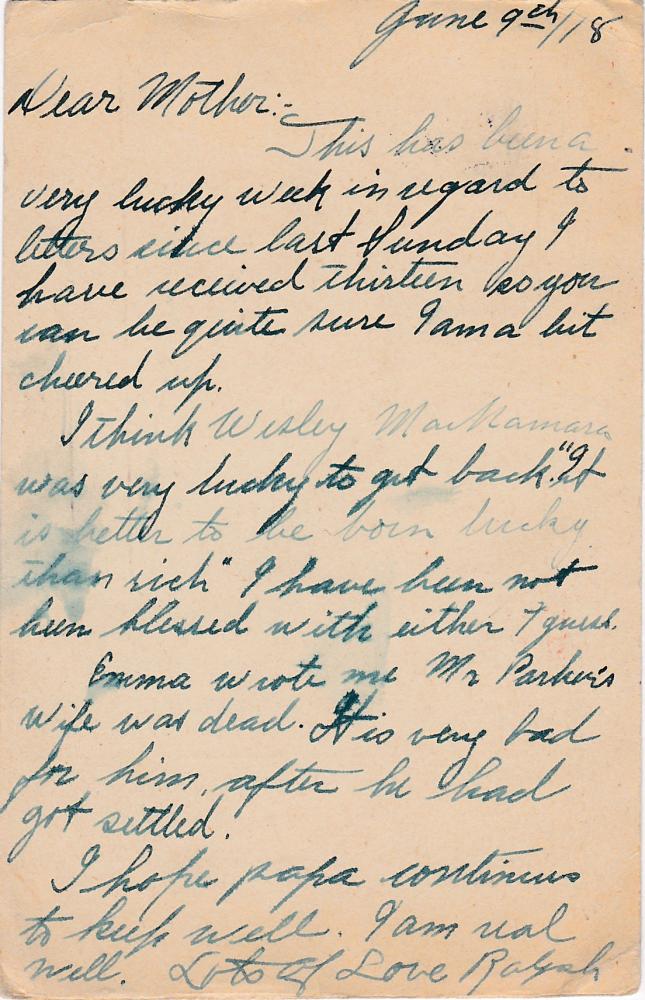 June 9th/18
Dear Mother:-
This has been a
very lucky week in regard to
letters since last Sunday I
have received thirteen so you
can be quite sure I am a bit
cheered up.
I think Wesley MacNamara
was very lucky to get back. "It
is better to be born lucky
than rich" I have been not
been blessed with either I guess.
Emma wrote me Mr Parker's
wife was dead. It is very bad
for him, after he had
got settled.
I hope papa continues
to keep well. I am real
well. Lots of Love Ralph